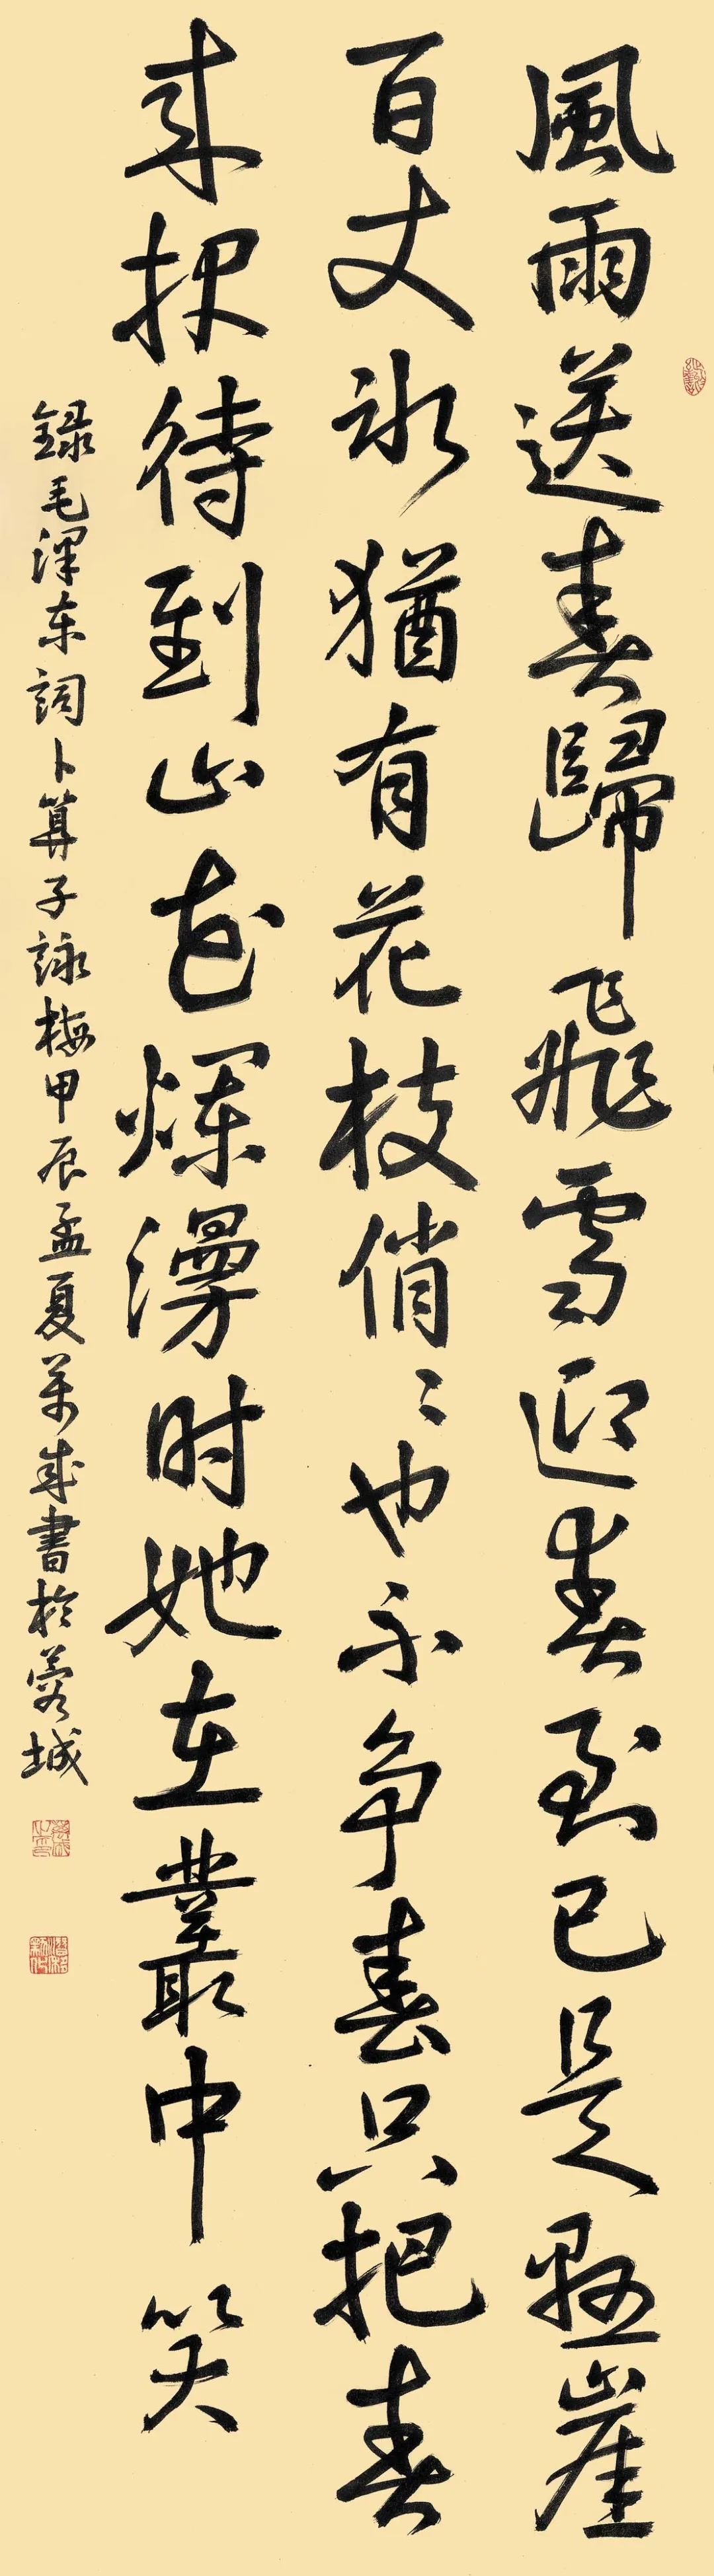 風雨送春歸飛雪迎春到已是懸崖
百丈冰猶有花枝俏〻也不争春只把春
来报待到山花爛漫时她在叢中笑
録毛澤东詞卜算子詠梅甲辰孟夏萬成書於蓉城